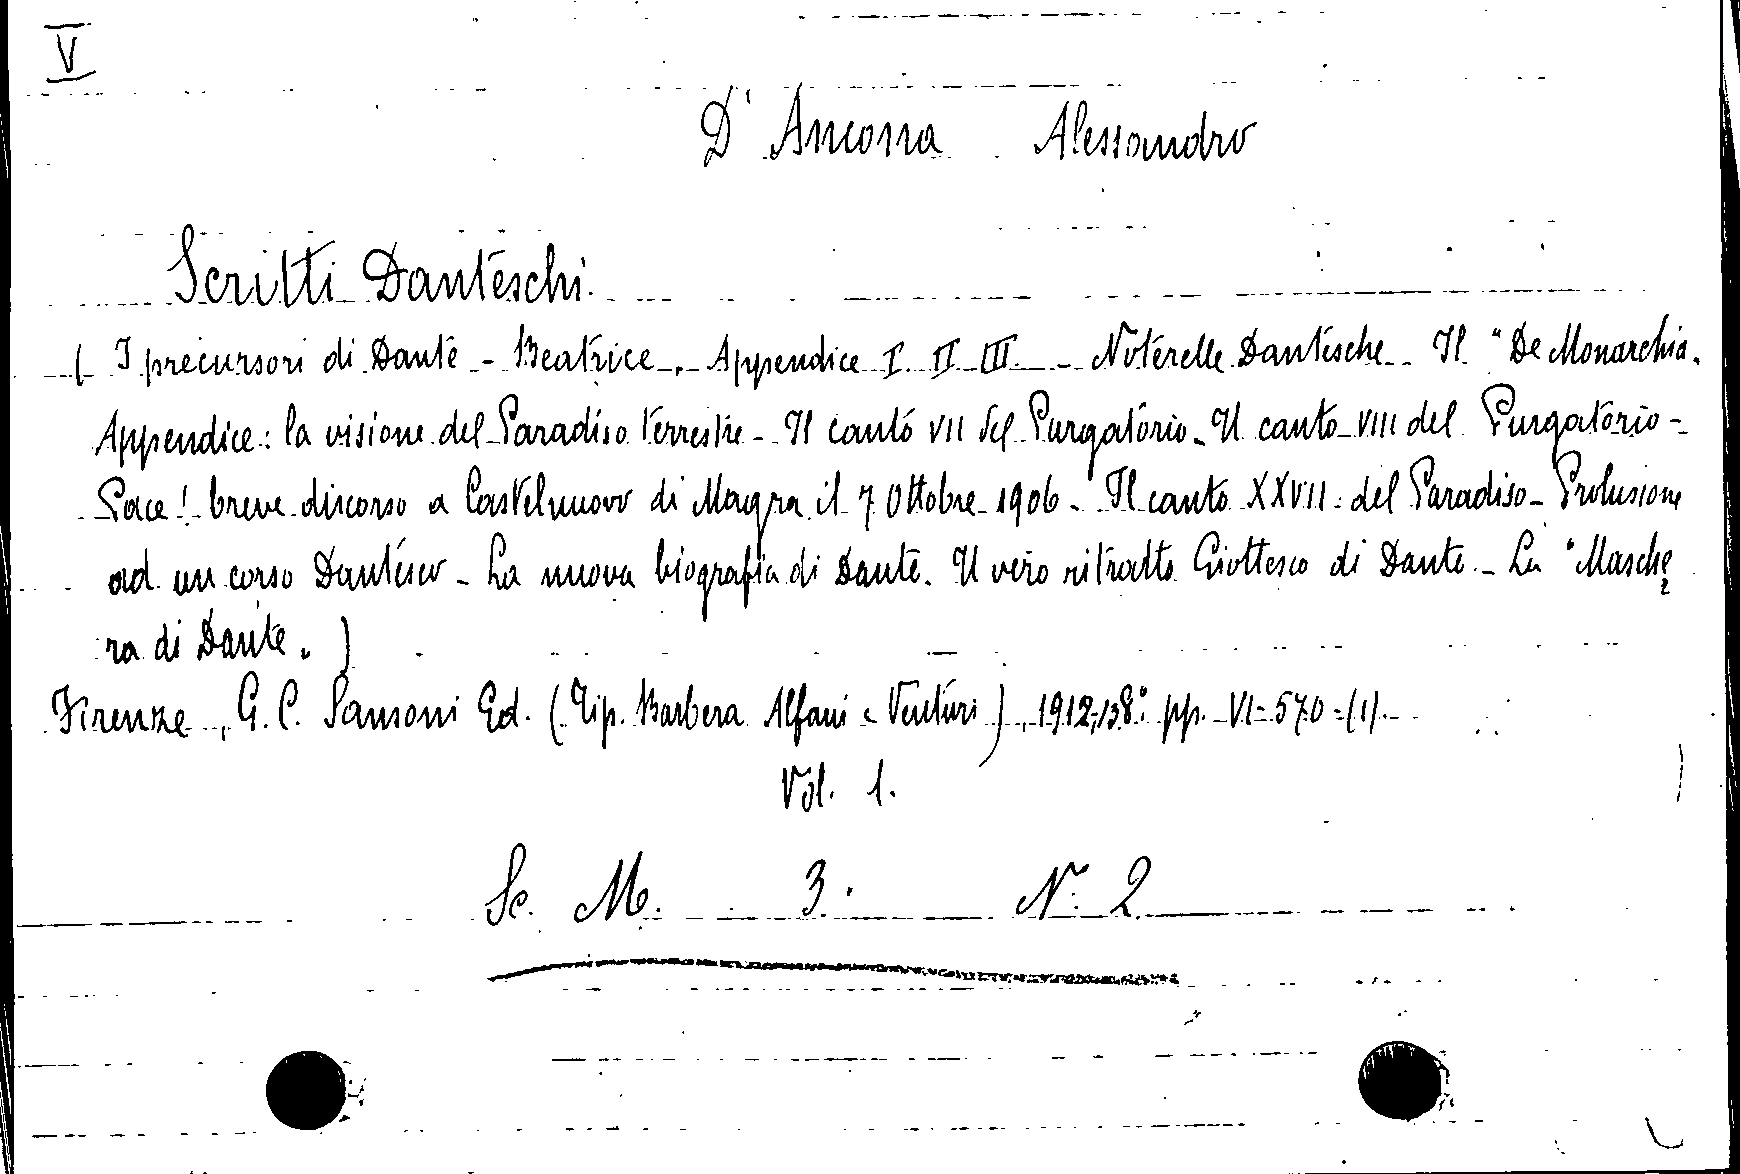 V
D' Ancona Alessandro
Scritti Danteschi.
( I precursori di Dante - Beatrice. Appendice I II III - Noterelle Dantesche - Il "De Monarchia.
Appendice: la visione del Paradiso Terrestre - Il canto VII del Purgatorio. Il canto VIII del Purgatorio -
Pace! breve discorso a Castelnuovo di Magra il 7 Ottobre 1906 - Il canto XXVII del Paradiso - Prolusione
ad un corso Dantesco - La nuova biografia di Dante. Il vero ritratto Giottesco di Dante - La "Masche
ra di Dante. )
Firenze, G. C. Sansoni Ed. (Tip. Barbera Alfani e Venturi), 1912, 8° pp. VI-570-(1).
Vol. 1.
Sc. M. 3. N. 2